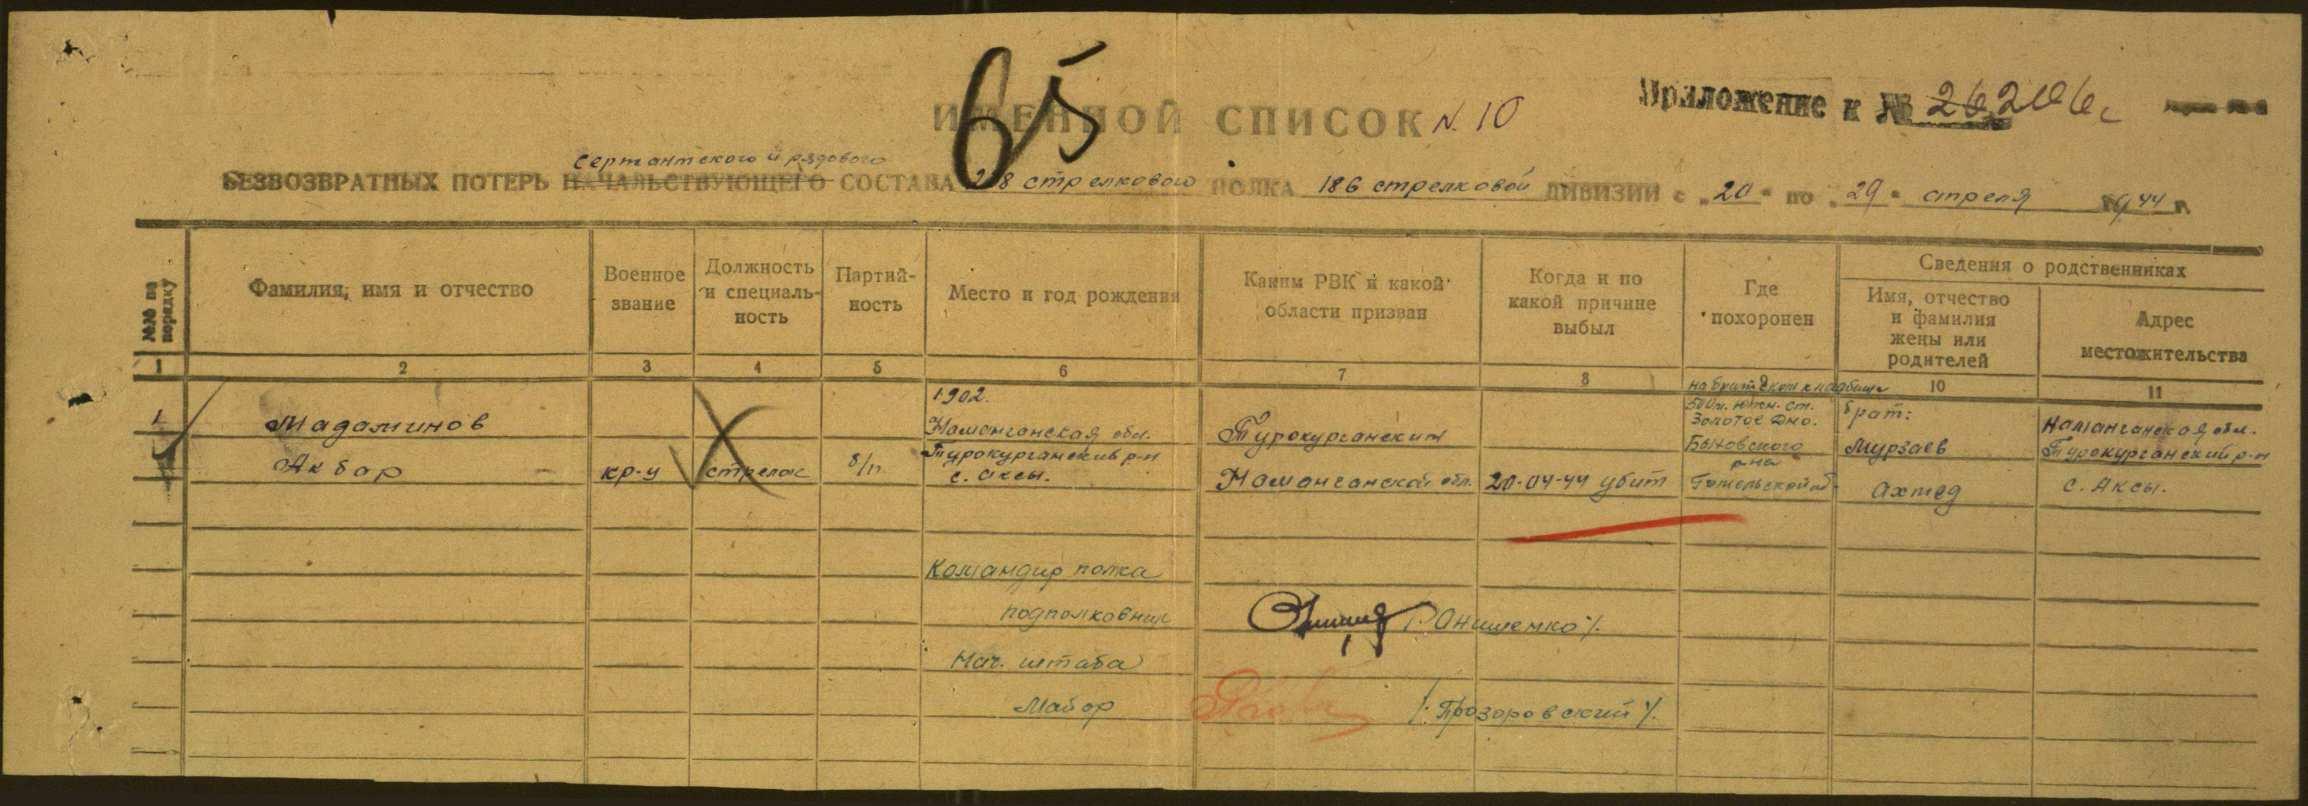 65
Приложение к № 26206с
ИМЕННОЙ СПИСОК N. 10
сержантского и рядового
БЕЗВОЗВРАТНЫХ ПОТЕРЬ НАЧАЛЬСТВУЮЩЕГО СОСТАВА 238 стрелкового ПОЛКА 186 стрелковой ДИВИЗИИ с "20" по "29" апреля 1944 г.
№№ по порядку
Фамилия, имя и отчество
Военное звание
Должность и специальность
Партийность
Место и год рождения
Каким РВК и какой области призван
Когда и по какой причине выбыл
Где похоронен
Сведения о родственниках
Имя, отчество и фамилия жены или родителей
Адрес местожительства
1 2 3 4 5 6 7 8 9 10 11
1
Мадаминов
Акбар
кр-ц
стрелок
б/п
1902.
Наманганская обл.
Турокурганский р-н
с. Аксы.
Турокурганским
Наманганской обл.
20-04-44 убит
на братском кладбище
500 м. южн. ст.
Золотое Дно.
Быховского
р-на
Гомельской об.
брат:
Мурзаев
Ахмед
Наманганская обл.
Турокурганский р-н
с. Аксы.
Командир полка
подполковник
/Онищенко/.
Нач. штаба
Майор
/Прозоровский/.